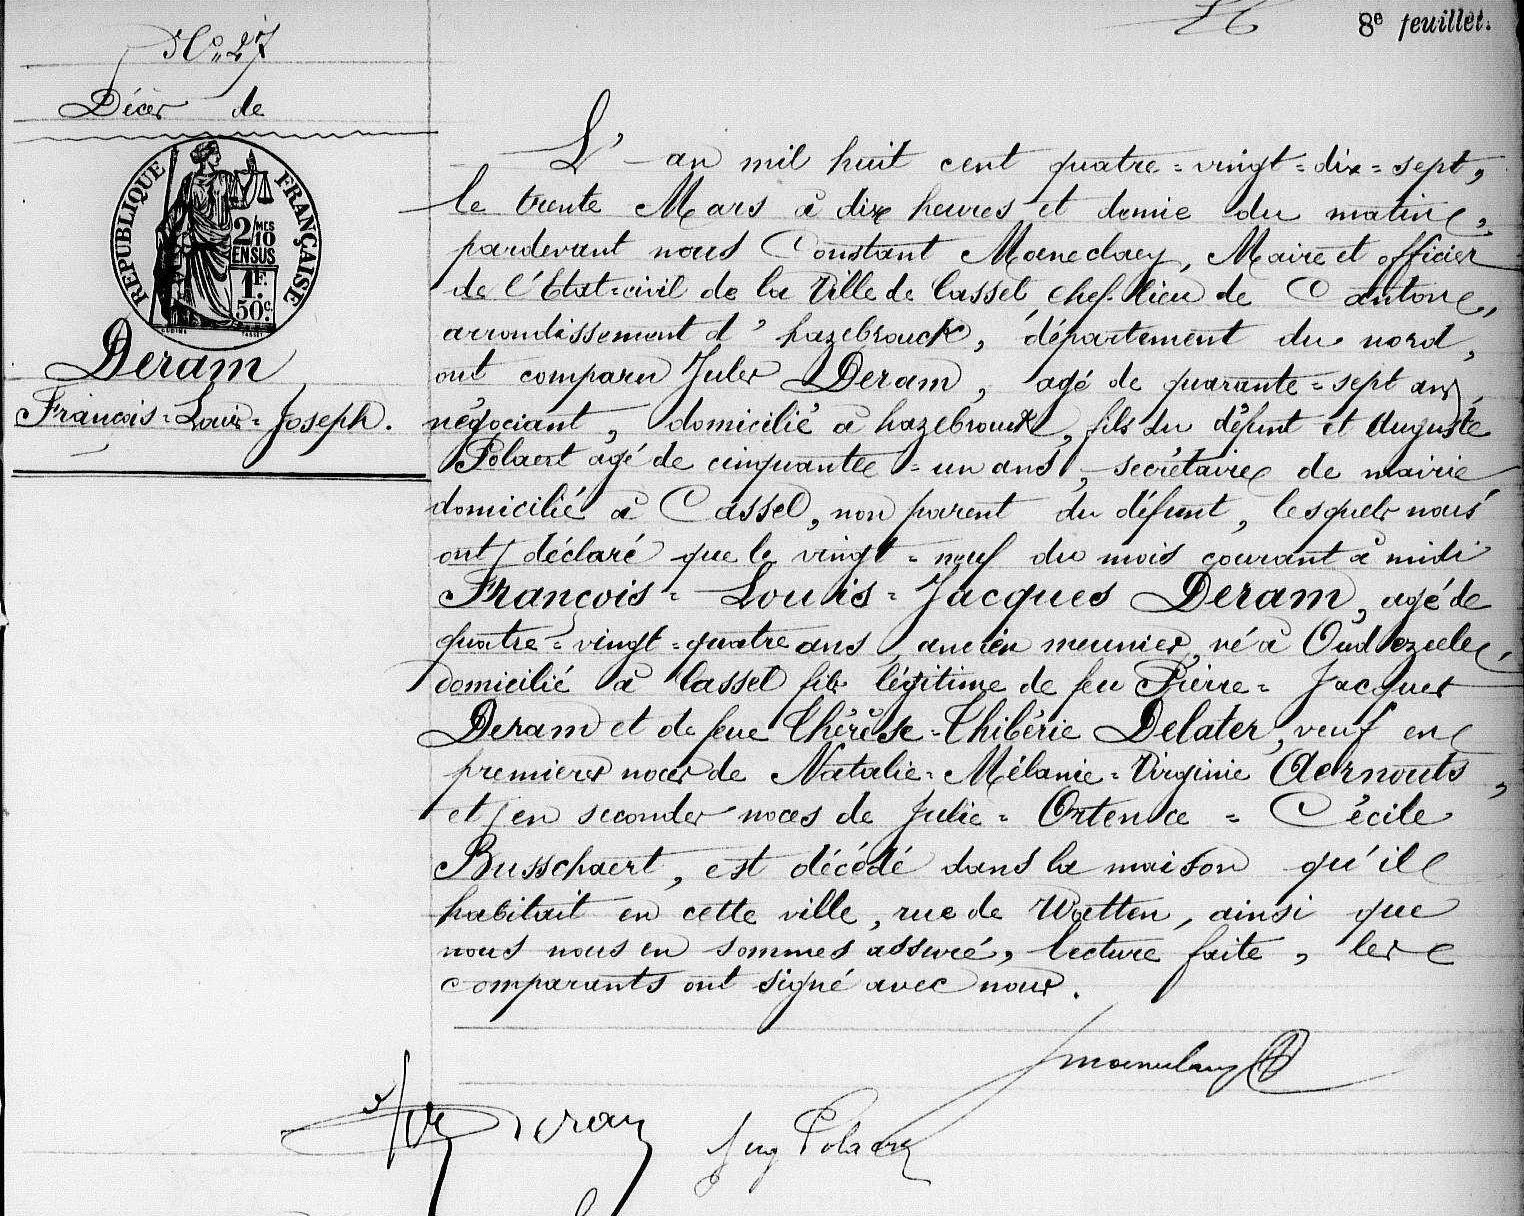 8e feuillet.
No 27
Décès de
RÉPUBLIQUE FRANÇAISE
2/MES
10
EN SUS
1F.
50c.
Deram
François-Louis-Joseph.
L'an mil huit cent quatre-vingt-dix-sept,
le trente Mars à dix heures et demie du matin,
pardevant nous Constant Moneclaey, Maire et officier
de l'Etat-civil de la Ville de Cassel chef-lieu de Canton,
arrondissement d'hazebrouck, département du nord,
ont comparu Jules Deram, agé de quarante-sept ans,
négociant, domicilié à hazebrouck, fils du défunt et Auguste
Polaert agé de cinquante-un ans, secrétaire de mairie
domicilié à Cassel, non parent du défunt, lesquels nous
ont déclaré que le vingt-neuf du mois courant à midi
François-Louis-Jacques Deram, agé de
quatre-vingt-quatre ans, ancien meunier, né à Oudezeele,
domicilié à Cassel fils légitime de feu Pierre-Jacques
Deram et de feue Thérèse-Thibérie Delater, veuf en
premières noces de Natalie-Mélanie-Virginie Aernouts,
et en secondes noces de Julie-Ortence-Cécile
Busschaert, est décédé dans la maison qu'il
habitait en cette ville, rue de Watten, ainsi que
nous nous en sommes assuré, lecture faite, les
comparants ont signé avec nous.
Deram
Aug Polaert